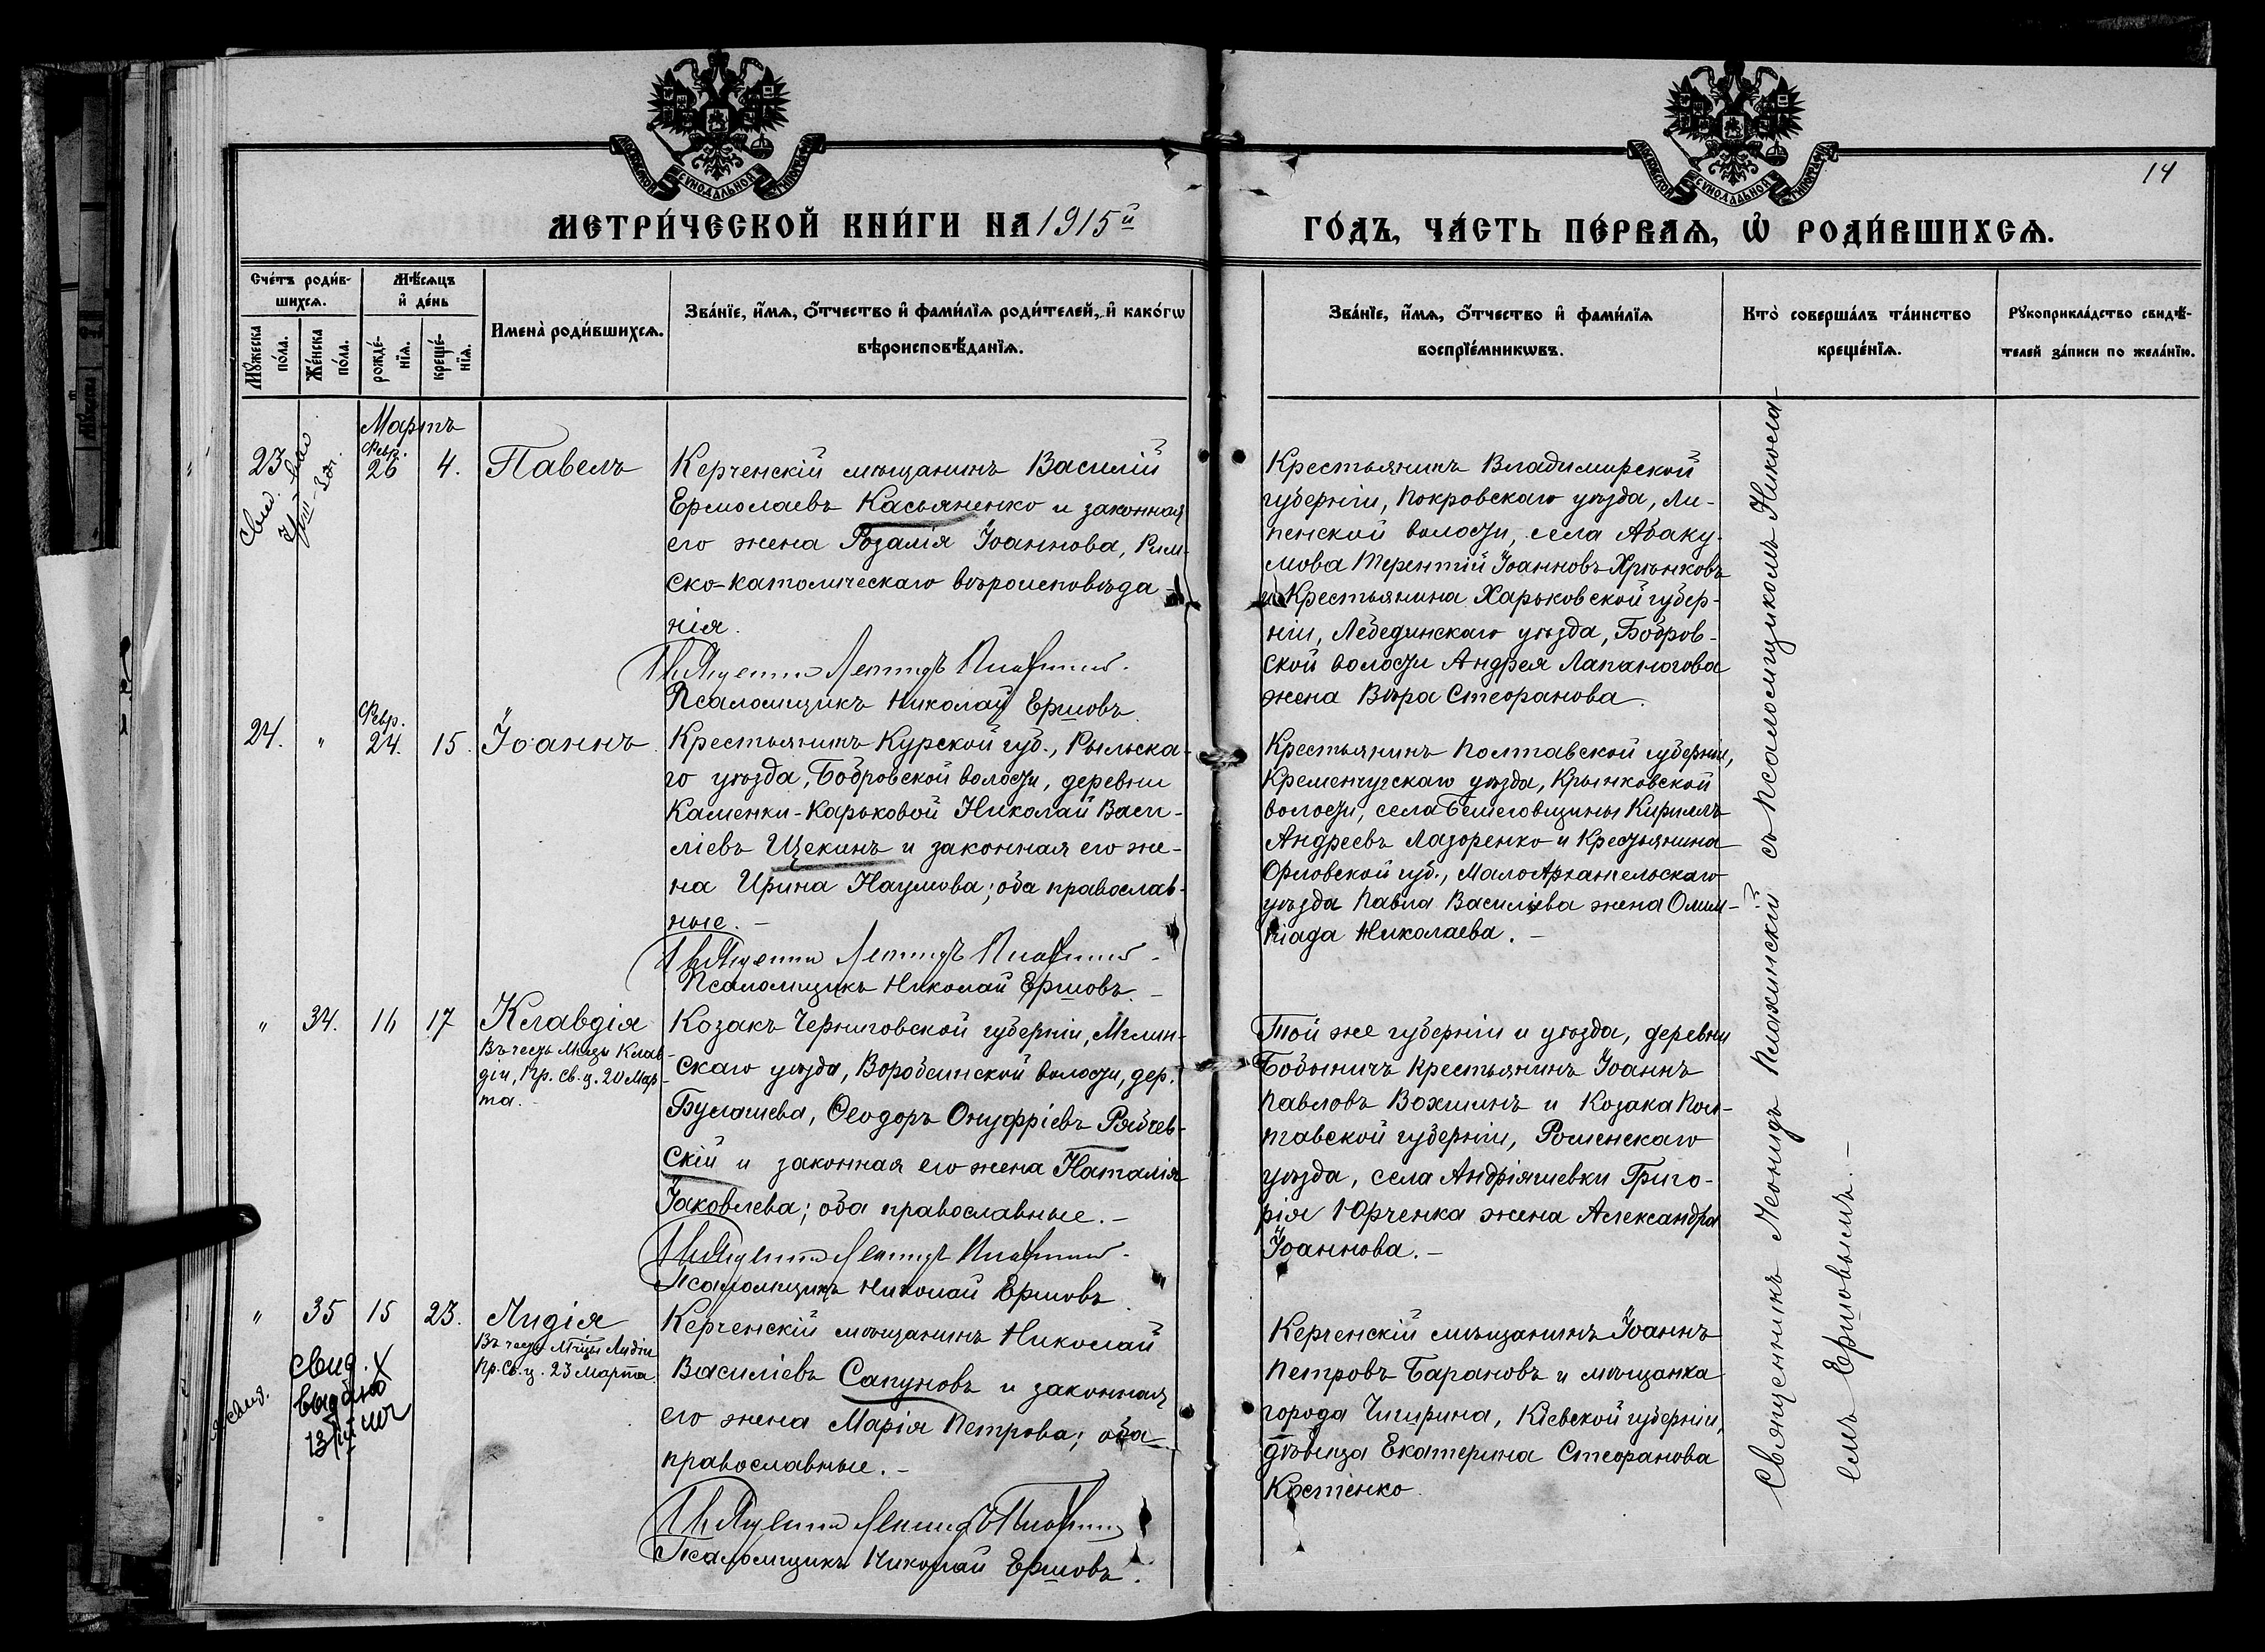 МОСКОВСКОЙ СУНОДАЛЬНОЙ ТИПОГРАФІИ
МОСКОВСКОЙ СУНОДАЛЬНОЙ ТИПОГРАФІИ
14
МЕТРИ́ЧЕСКОЙ КНИ́ГИ НА 1915й
ГО́ДЪ, ЧА́СТЬ ПЕ́РВАѦ, Ѡ҆ РОДИ́ВШИХСѦ.
Сче́тъ роди́в-
шихсѧ.
Мꙋ́жеска
по́ла.
Же́нска
по́ла.
Мѣ́сѧцъ
и҆ де́нь
рожде́-
нїѧ.
креще́-
нїѧ.
Имена̀ роди́вшихсѧ.
Зва́нїе, и҆́мѧ, ѻ҆́тчество и҆ фами́лїѧ роди́телей, и҆ како́гѡ
вѣроисповѣ́данїѧ.
Зва́нїе, и҆́мѧ, ѻ҆́тчество и҆ фами́лїѧ
воспрїе́мникѡвъ.
Кто̀ соверша́лъ та́инство
креще́нїѧ.
Рꙋкоприкла́дство свидѣ́-
телей за́писи по жела́нїю.
Мартъ
23
Февр.
26
4.
Павелъ
Керченскій мѣщанинъ Василій
Ермолаевъ Касьяненко и законная
его жена Розалія Іоаннова, Рим-
ско-католическаго вѣроисповѣда-
нія.
Священникъ Леонидъ
Псаломщикъ Николай Ершовъ.
Крестьянинъ Владимирской
губерніи, Покровскаго уѣзда, Ли-
пенской волости, села Абаку-
мова Терентій Іоанновъ Хрѣнковъ
и Крестьянина Харьковской губер-
ніи, Лебединскаго уѣзда, Бобров-
ской волости Андрея Лапаногова
жена Вѣра Стефанова.
24.
"
Февр.
24.
15.
Іоаннъ
Крестьянинъ Курской губ., Рыльска-
го уѣзда, Бобровской волости, деревни
Каменки-Карьковой Николай Васи-
ліевъ Щекинъ и законная его же-
на Ирина Наумова; оба православ-
ные. -
Священникъ Леонидъ
Псаломщикъ Николай Ершовъ. -
Крестьянинъ Полтавской губерніи,
Кременчугскаго уѣзда, Крынковской
волости, села Кириллъ
Андреевъ Лазоренко и Крестьянина
Орловской губ., МалоАрхангельскаго
уѣзда Павла Василіева жена Олим-
піада Николаева. -
"
34.
16
17
Клавдія
Въ честь Мцы Клав-
діи, Пр. св. ц. 20 Мар-
та.
Козакъ Черниговской губерніи, Мглин-
скаго уѣзда, Воробеинской волости, дер.
Булашева, Ѳеодоръ Онуфріевъ Рябчев-
скій и законная его жена Наталія
Іаковлева; оба православные. -
Священникъ Леонидъ
Псаломщикъ Николай Ершовъ
Той же губерніи и уѣзда, деревни
Крестьянинъ Іоаннъ
Павловъ Вохминъ и Козака Пол-
тавской губерніи, Роменскаго
уѣзда, села Андріяшевки Григо-
рія Юрченка жена Александра
Іоаннова. -
"
35
15
23.
Лидія
Въ честь Мцы Лидіи
Пр. Св. ц. 23 Марта.
Свид.
выдано
Керченскій мѣщанинъ Николай
Василіевъ Сапуновъ и законная
его жена Марія Петрова; оба
православные. -
Священникъ Леонидъ
Псаломщикъ Николай Ершовъ.
Керченскій мѣщанинъ Іоаннъ
Петровъ Барановъ и мѣщанка
города Чигирина, Кіевской губерніи,
дѣвица Екатерина Стефанова
Костенко.
Священникъ Леонидъ Плохинскій съ псаломщикомъ Никола-
емъ Ершовымъ. -